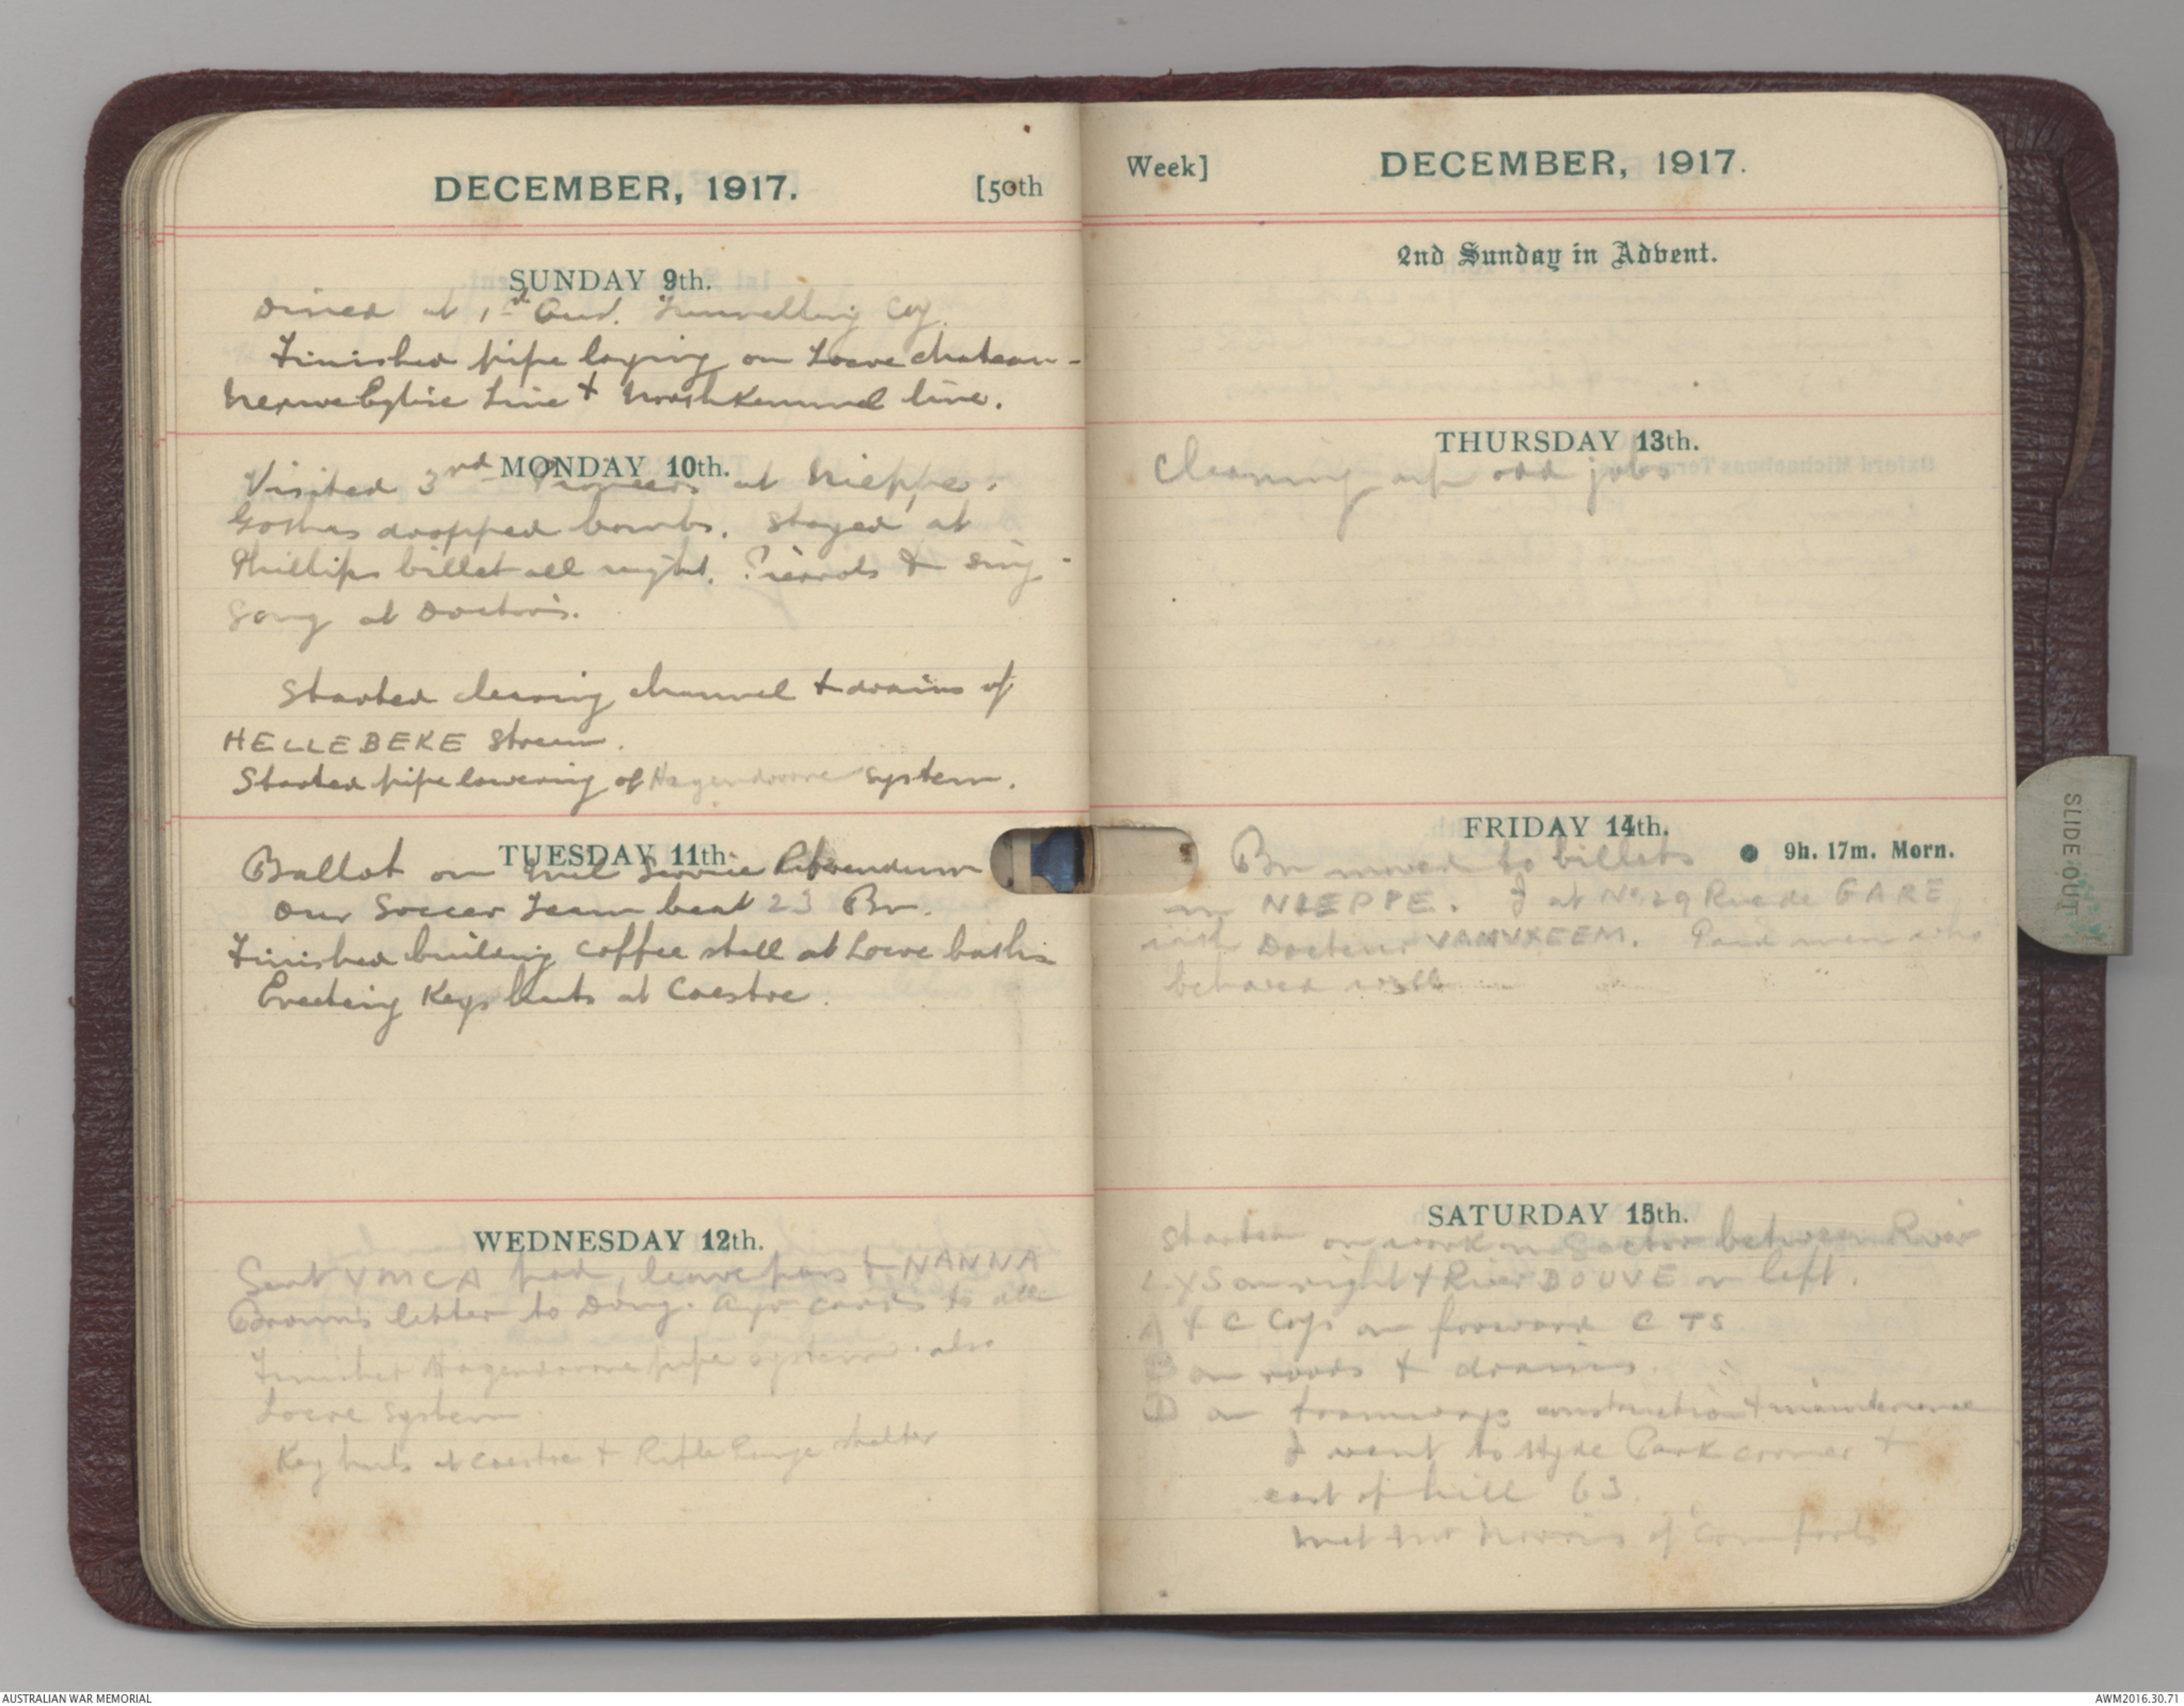 DECEMBER, 1917. [50th
SUNDAY 9th.
Dined at 1st Aust. Tunnelling Coy.
Finished pipe laying on Locre chateau-
Neuve Eglise Line & North Kemmel line.
MONDAY 10th.
Visited 3rd Pioneers at Nieppe.
Gothas dropped bombs. Stayed at
Phillips billet all night. Pierrots & sing-
song at Doctors.
Started clearing channel & drains of
HELLEBEKE Stream.
Started pipe lowering of Hagendoorne system.
TUESDAY 11th.
Ballot on Mil Service Referendum
Our Soccer Team beat 23 Bn.
Finished building coffee stall at Locre baths
Erecting Keys huts at Caestre.
WEDNESDAY 12th.
Sent YMCA pad, leave pass & NANNA
Brown's letter to Dong. Xmas cards to all
Finished Hagendoorne pipe system. also
Locre System.
Key huts at Caestre & Rifle Range shelter
Week] DECEMBER, 1917.
2nd Sunday in Advent.
THURSDAY 13th.
Cleaning up odd jobs
FRIDAY 14th.
● 9h. 17m. Morn.
Bn moved to billets
in NIEPPE. I at No 29 Rue de GARE
with Docteur VANVXEEM. Paid men who
behaved well
SATURDAY 15th.
Started on work in Sector between River
LYS on right & River DOUVE on left.
A & C Coys on forward C TS
B on roads & drains
D on tramways construction & maintenance
I went to Hyde Park corner &
east of hill 63.
Met Mr Norris of Comforts
SLIDE OUT
AUSTRALIAN WAR MEMORIAL
AWM2016.30.71